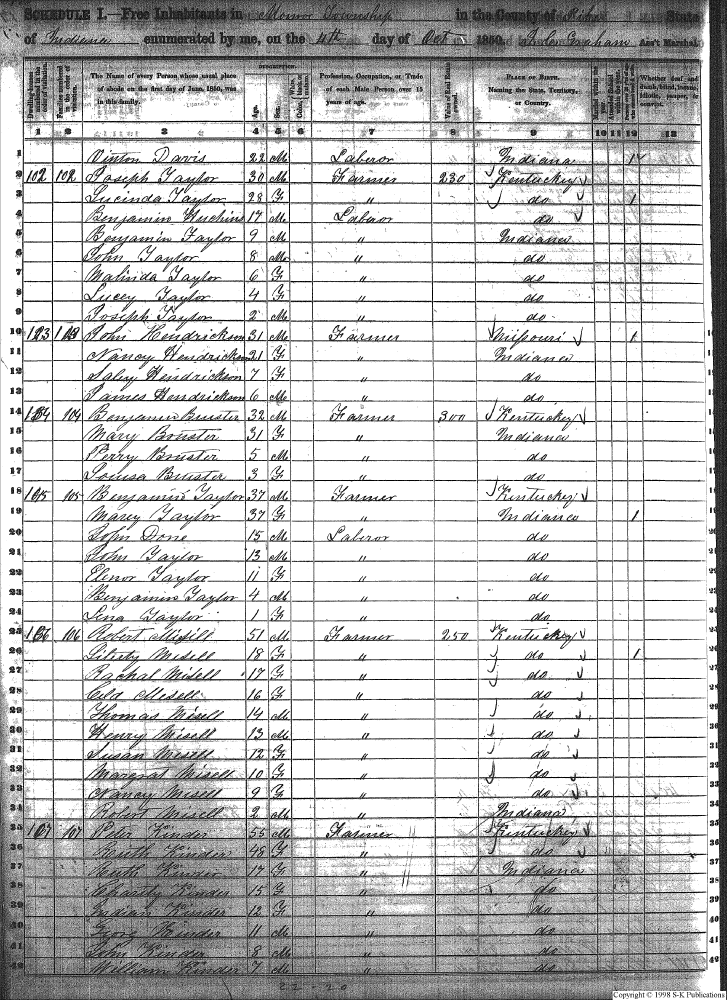 SCHEDULE I.—Free Inhabitants in Monro Township in the County of Pike State
of Indiana enumerated by me, on the 4th day of Oct 1850. Graham Ass't Marshal.
DESCRIPTION.
The Name of every Person whose usual place of abode on the first day of June, 1850, was in this family. Age. Sex. Profession, Occupation, or Trade of each Male Person over 15 years of age. Value of Real Estate owned. PLACE OF BIRTH. Naming the State, Territory, or Country. Whether deaf and dumb, blind, insane, idiotic, pauper, or convict.
1 2 3 4 5 6 7 8 9 10 11 12 13
1 Vinton Davis 22 M Laberor Indiana 1
2 102 102 Joseph Taylor 30 M Farmer 230 Kentuckey
3 Lucinda Taylor 28 F " do 1
4 Benjamin Huchins 17 M Laberor do
5 Benjamin Taylor 9 M " Indiana
6 John Taylor 8 M " do
7 Malinda Taylor 6 F " do
8 Lucey Taylor 4 F " do
9 Joseph Taylor 2 M " do
10 123 John Hendrickson 31 M Farmer Missouri 1
11 Nancy Hendrickson 21 F " Indiana
12 Saley Hendrickson 7 F " do
13 James Hendrickson 6 M " do
14 104 104 Benjamin Bruster 32 M Farmer 300 Kentuckey
15 Mary Bruster 31 F " Indiana
16 Perry Bruster 5 M " do
17 Louisa Bruster 3 F " do
18 105 105 Benjamin Taylor 37 M Farmer Kentuckey
19 Marey Taylor 37 F " Indiana 1
20 John Done 15 M Laberor do
21 John Taylor 13 M " do
22 Elenor Taylor 11 F " do
23 Benjamin Taylor 4 M " do
24 Lena Taylor 1 F " do
25 106 106 Robert Misell 51 M Farmer 250 Kentuckey
26 Liberty Misell 18 F " do 1
27 Rachal Misell 17 F " do
28 Misell 16 F " do
29 Thomas Misell 14 M " do
30 Henry Misell 13 M " do
31 Susan Misell 12 F " do
32 Margrat Misell 10 F " do
33 Nancy Misell 9 F " do
34 Robert Misell 2 M " Indiana
35 107 107 Peter Kinder 55 M Farmer Kentuckey
36 Ruth Kinder 48 F " do
37 Ruth Kinder 17 F " Indiana
38 Charity Kinder 15 F " do
39 Indian Kinder 12 F " do
40 Georg Kinder 11 M " do
41 John Kinder 8 M " do
42 William Kinder 7 M " do
22 - 20
Copyright © 1998 S-K Publications